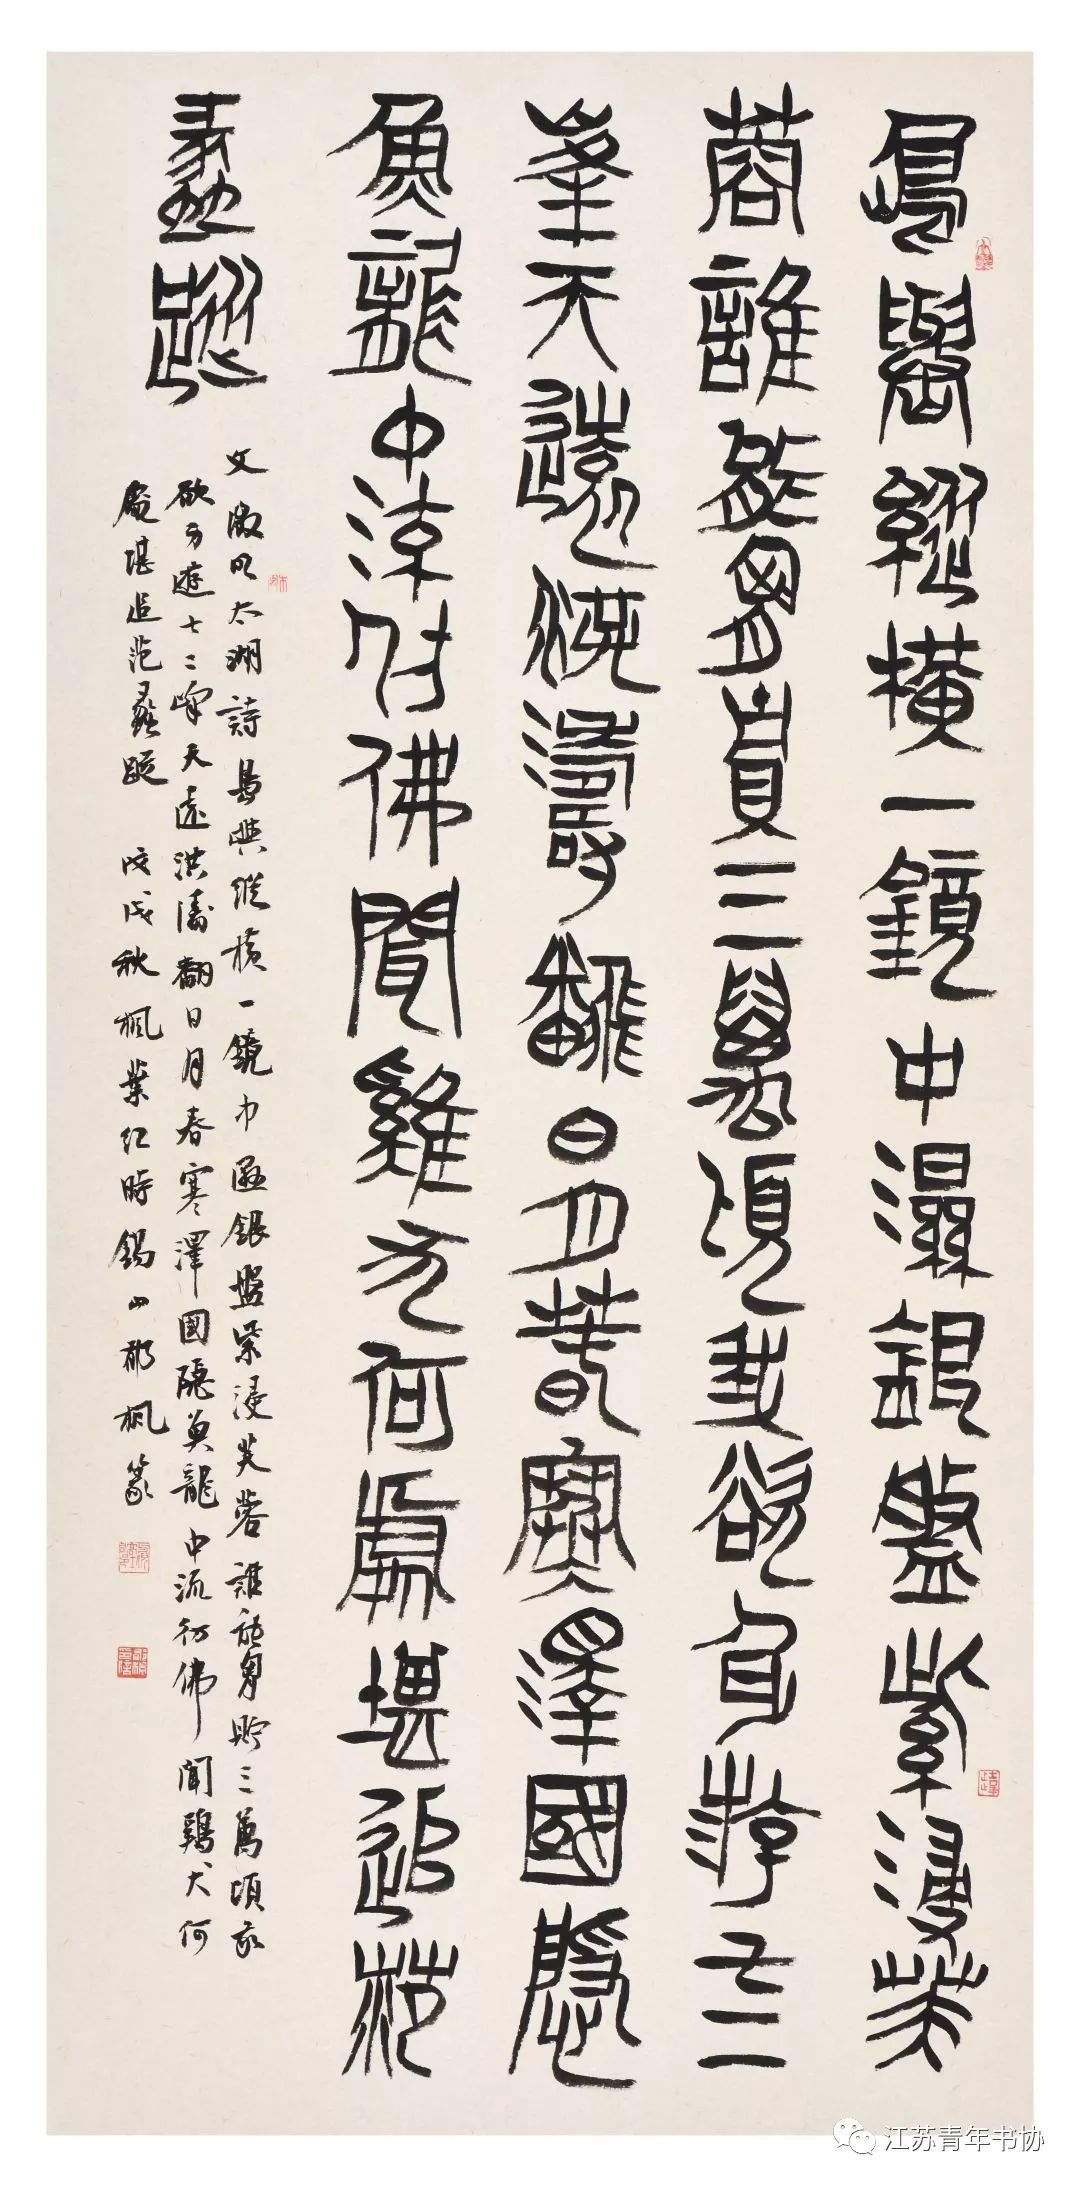 島嶼縱橫一鏡中濕銀盤紫浸芙
蓉誰能胷貯三萬頃我欲身游七十二
峯天遠洪濤翻日月春寒澤國隱
魚龍中流仿佛聞雞犬何處堪追范
蠡蹤
文徵明太湖詩 島嶼縱橫一鏡中溼銀盤紫浸芙蓉誰能胷貯三萬頃我
欲身遊七十二峰天遠洪濤翻日月春寒澤國隱魚龍中流彷佛聞鷄犬何
處堪追范蠡蹤 戊戌秋楓葉紅時錫山郁楓篆
江苏青年书协